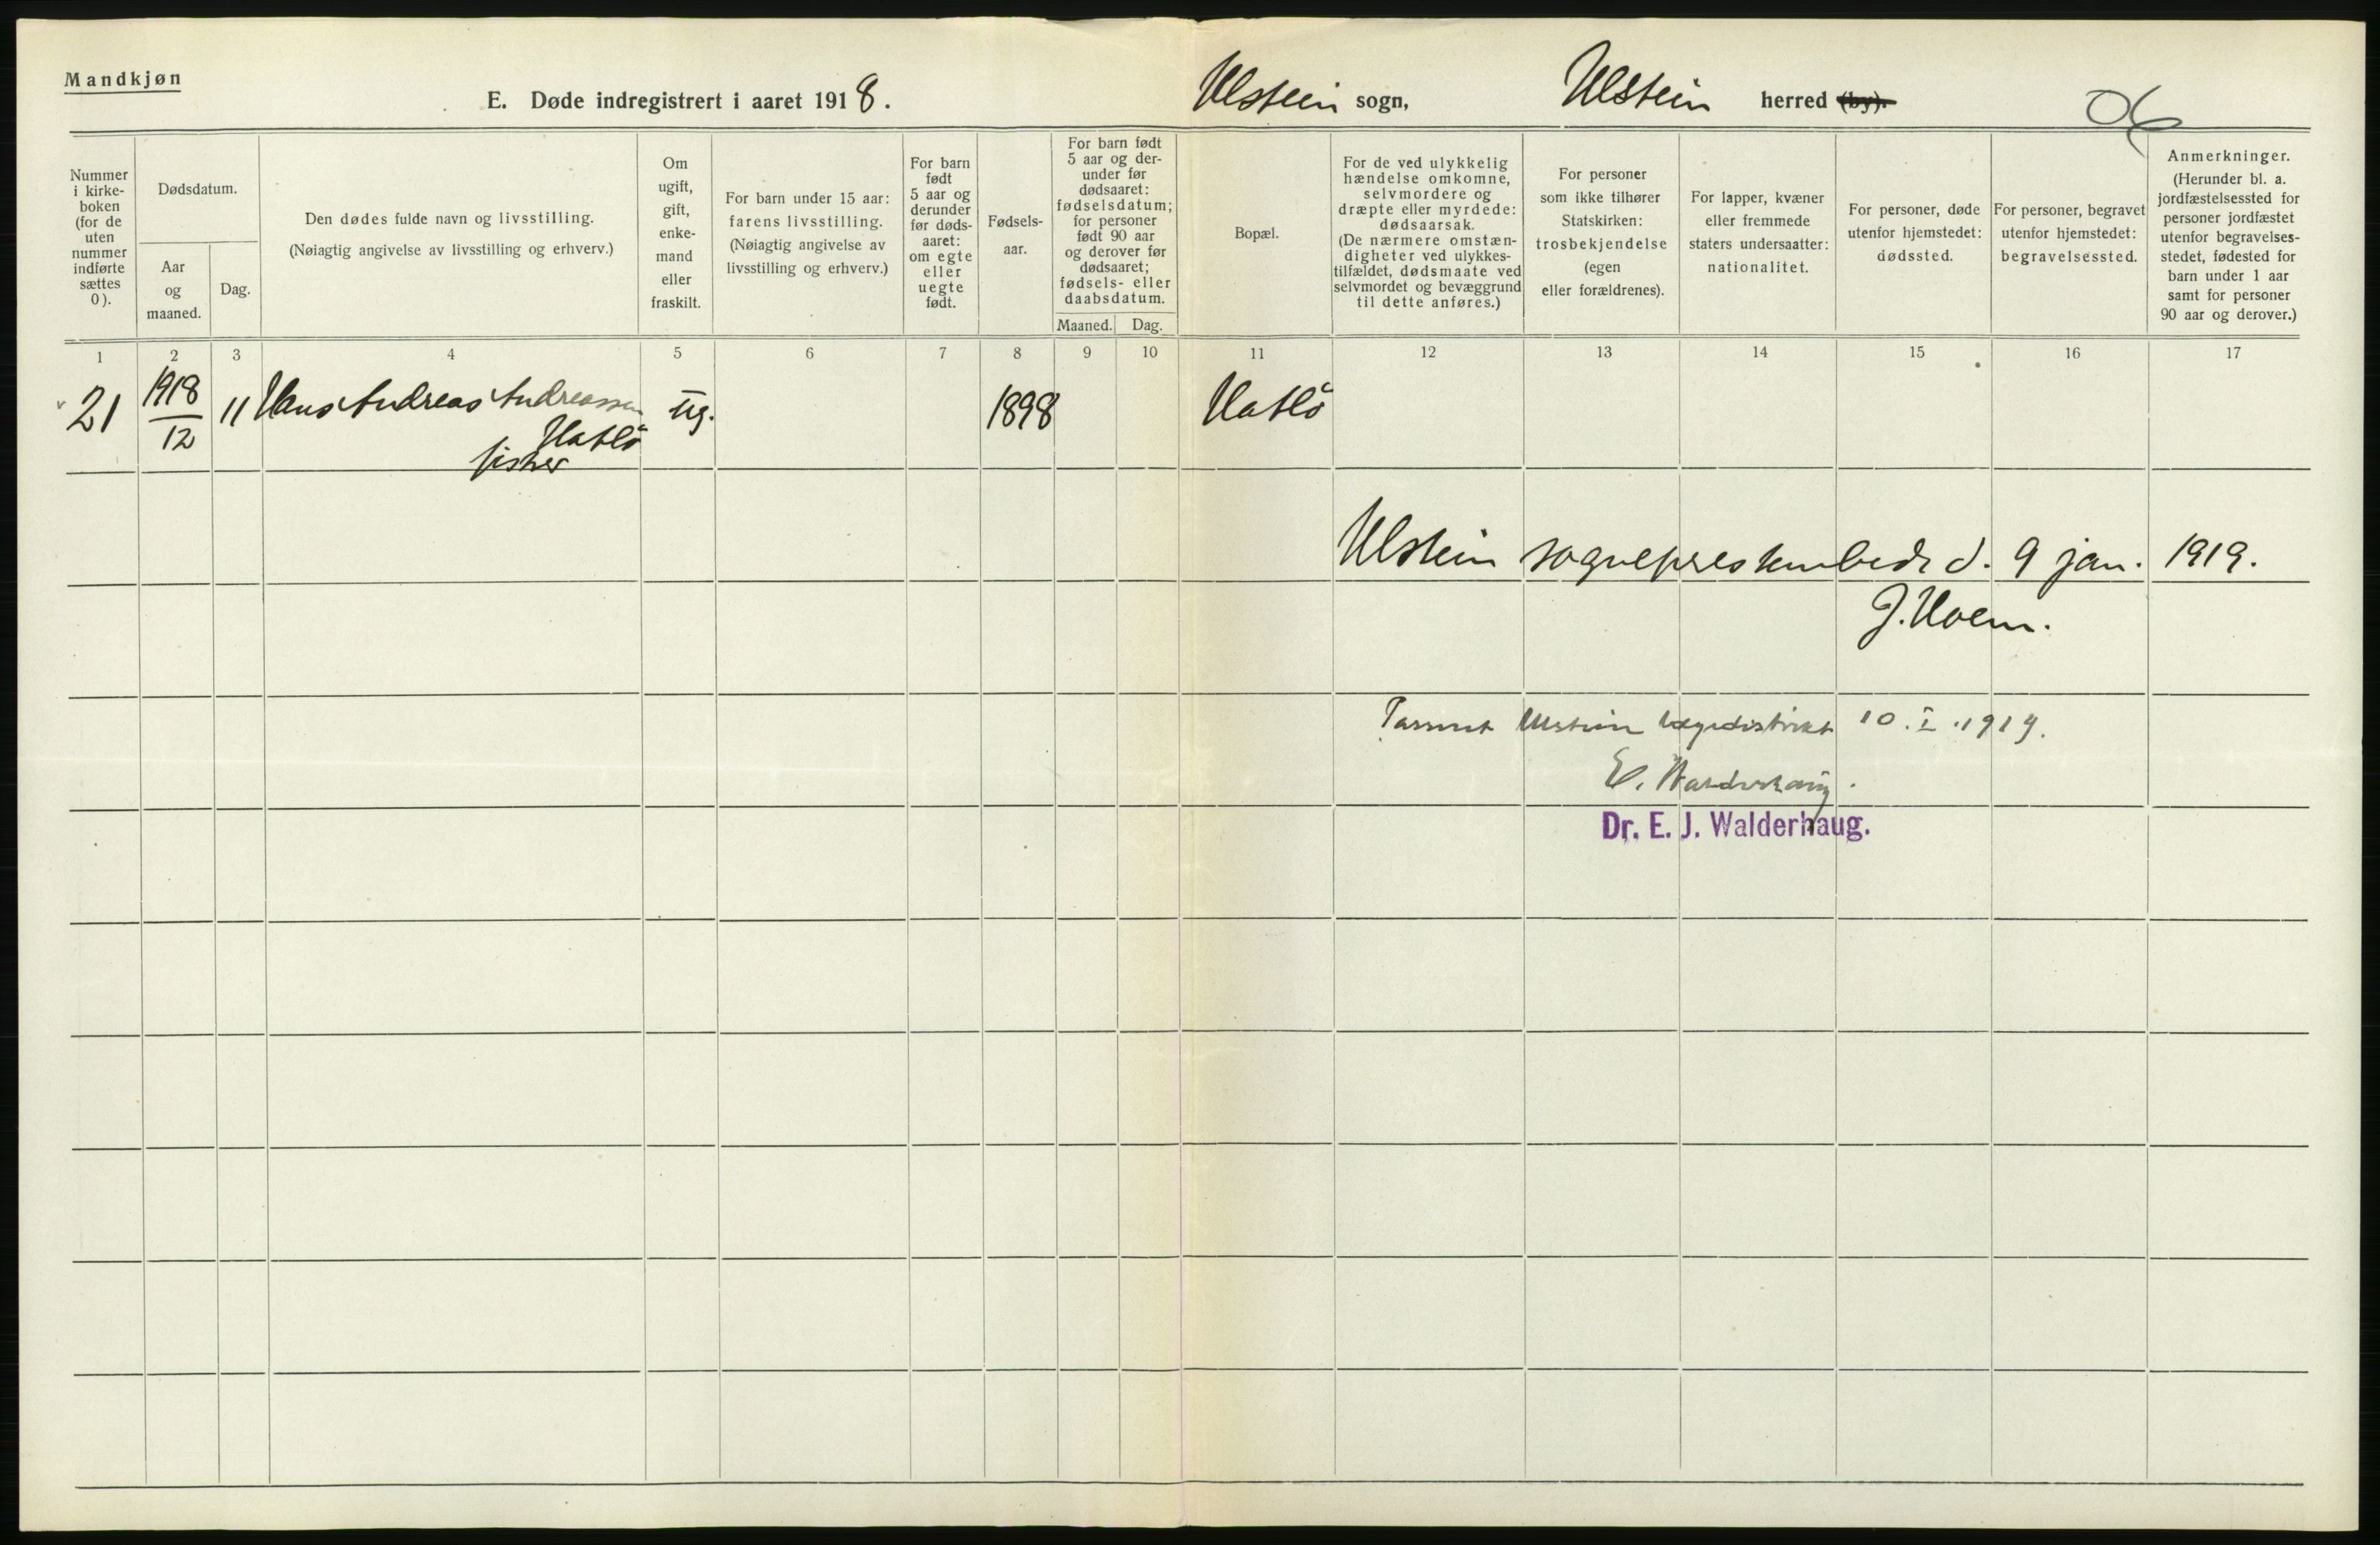 Mandkjøn
E. Døde indregistrert i aaret 1918.
Ulstein sogn, Ulstein herred (by).
06
Nummer
i kirke-
boken
(for de
uten
nummer
indførte
sættes
0).
Dødsdatum.
Aar
og
maaned.
Dag.
Den dødes fulde navn og livsstilling.
(Nøiagtig angivelse av livsstilling og erhverv.)
Om
ugift,
gift,
enke-
mand
eller
fraskilt.
For barn under 15 aar:
farens livsstilling.
(Nøiagtig angivelse av
livsstilling og erhverv.)
For barn
født
5 aar og
derunder
før døds-
aaret:
om egte
eller
uegte
født.
Fødsels-
aar.
For barn født
5 aar og der-
under før
dødsaaret:
fødselsdatum;
for personer
født 90 aar
og derover før
dødsaaret;
fødsels- eller
daabsdatum.
Maaned. Dag.
Bopæl.
For de ved ulykkelig
hændelse omkomne,
selvmordere og
dræpte eller myrdede:
dødsaarsak.
(De nærmere omstæn-
digheter ved ulykkes-
tilfældet, dødsmaate ved
selvmordet og bevæggrund
til dette anføres.)
For personer
som ikke tilhører
Statskirken:
trosbekjendelse
(egen
eller forældrenes).
For lapper, kvæner
eller fremmede
staters undersaatter:
nationalitet.
For personer, døde
utenfor hjemstedet:
dødssted.
For personer, begravet
utenfor hjemstedet:
begravelsessted.
Anmerkninger.
(Herunder bl. a.
jordfæstelsessted for
personer jordfæstet
utenfor begravelses-
stedet, fødested for
barn under 1 aar
samt for personer
90 aar og derover.)
1 2 3 4 5 6 7 8 9 10 11 12 13 14 15 16 17
21 1918/12 11 Hans Andreas Andreassen ug. 1898 Hatlö
Hatlö
fisker
Ulstein sogneprestembede d. 9 jan. 1919.
J. Hoem.
Passert Ulstein lægedistrikt 10.I.1919.
E. Walderhaug.
Dr. E. J. Walderhaug.